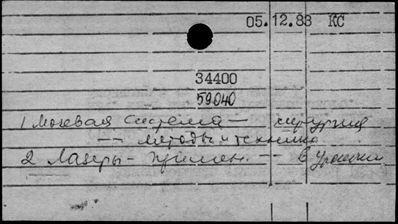 05.12.83 КС
34400
59040
1 Мочевая система — хирургия
— методы и техника
2 Лазеры - примен. — в урологии